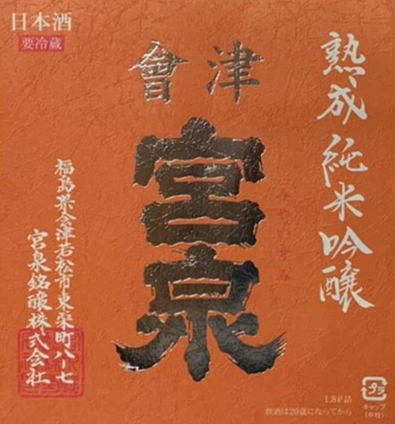 日本酒
要冷蔵
熟成純米吟醸
會津
宮泉
みやいずみ
福島県会津若松市東栄町八ー七
宮泉銘醸株式会社
1.8ℓ詰
飲酒は20歳になってから
プラ
キャップ
(中栓)